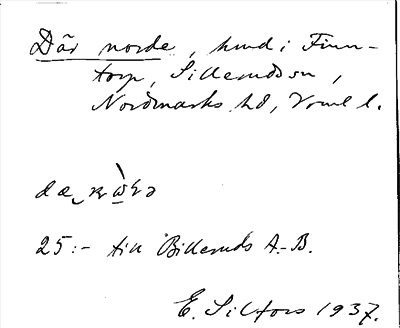 Där norde, hmd i Finn-
torp, Silleruds sn,
Nordmarks hd, Vrml l.
25:- till Billeruds A.-B.
E. Silfors 1937.